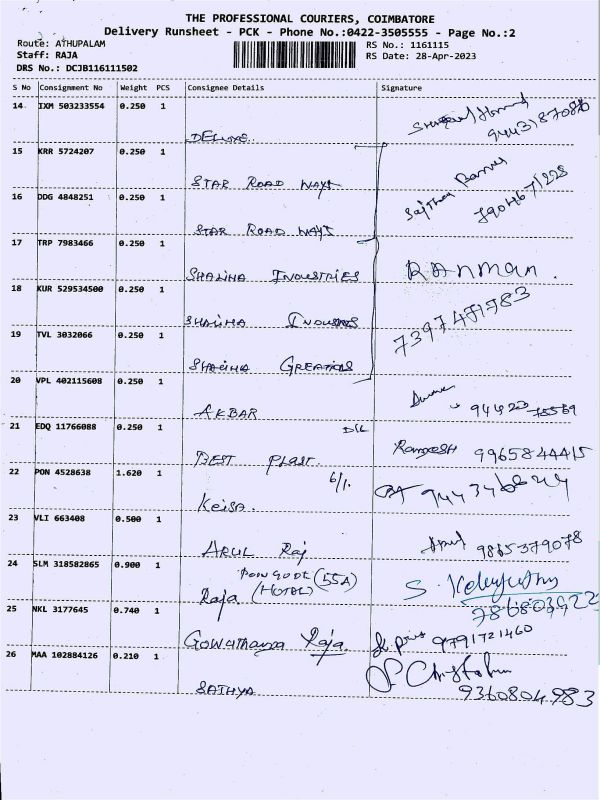 THE PROFESSIONAL COURIERS, COIMBATORE
Delivery Runsheet - PCK - Phone No.:0422-3505555 - Page No.:2
Route: ATHUPALAM RS No.: 1161115
Staff: RAJA RS Date: 28-Apr-2023
DRS No.: DCJB116111502
S No Consignment No Weight PCS Consignee Details Signature
14 IXM 503233554 0.250 1
DELUXE
15 KRR 5724207 0.250 1
STAR ROAD WAYS
16 DDG 4848251 0.250 1
STAR ROAD WAYS
17 TRP 7983466 0.250 1
SHALIHA INDUSTRIES RAHMAN.
18 KUR 529534500 0.250 1
SHALIHA 7397471783
19 TVL 3032066 0.250 1
SHALIHA CREATIONS
20 VPL 402115608 0.250 1
AKBAR
21 EDQ 11766088 0.250 1 D/L
BEST PLAST. RAMESH 9965844415
22 PON 4528638 1.620 1 6/1.
Keisa.
23 VLI 663408 0.500 1
ARUL Raj 9865379078
24 SLM 318582865 0.900 1
Raja (HOTEL) (55A)
25 NKL 3177645 0.740 1 786803922
Gowthama Raja 9791721460
26 MAA 102884126 0.210 1
SATHYA 9360804983